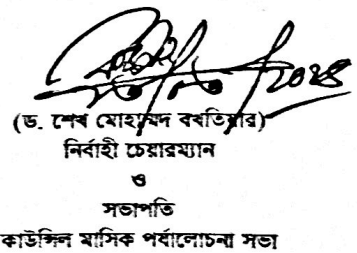 (ড. শেখ মোহাম্মদ বখতিয়ার)
নির্বাহী চেয়ারম্যান
ও
সভাপতি
কাউন্সিল মাসিক পর্যালোচনা সভা